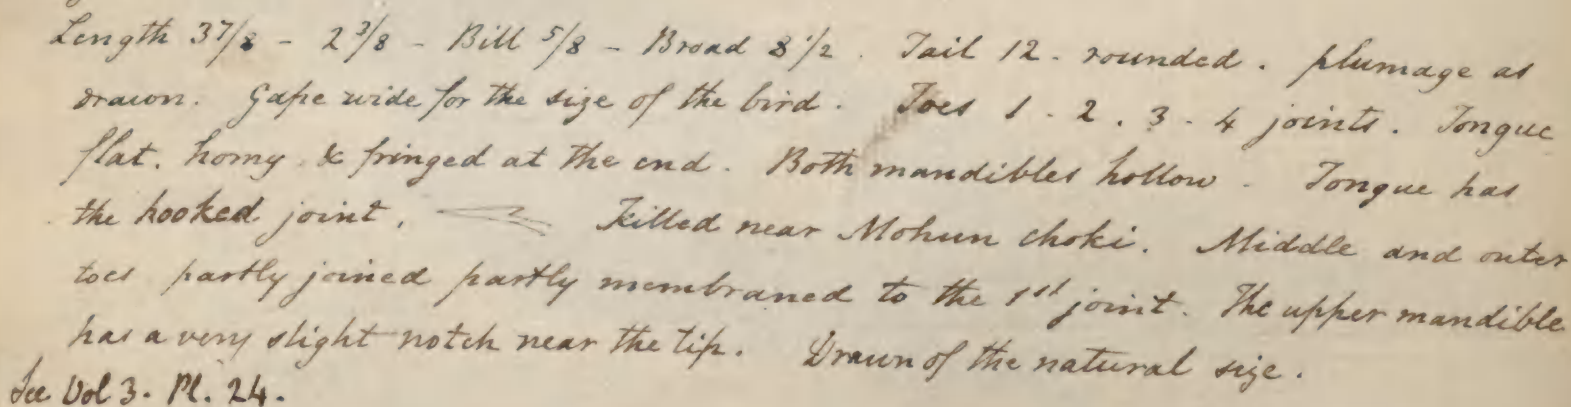 Length 3 7/8 - 2 3/8 - Bill 5/8 - Broad 8 1/2. Tail 12 - rounded. plumage as
drawn. Gape wide for the size of the bird. Toes 1 - 2. 3 - 4 joints. Tongue
flat. horny & fringed at the end. Both mandibles hollow. Tongue has
the hooked joint. Killed near Mohun choki. Middle and outer
toes partly joined partly membraned to the 1st joint. The upper mandible
has a very slight notch near the tip. Drawn of the natural size.
See Vol 3. Pl. 24.